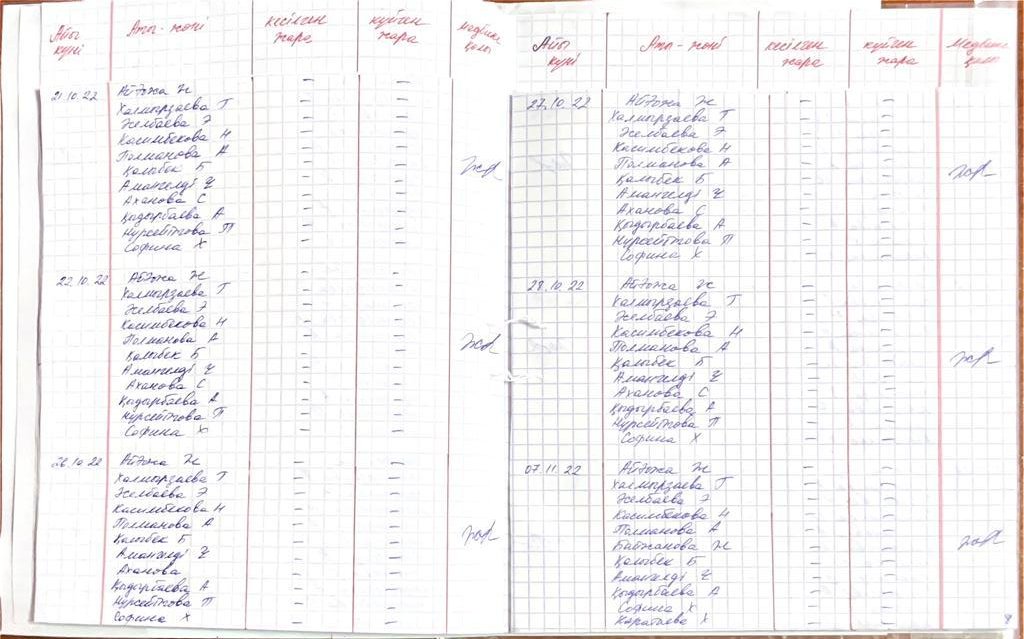 Айы күні Аты - жөні кесілген жара күйген жара Медбике қолы
21.10.22 Айқожа Ж - -
Халмырзаева Т - -
Желбаева Э - -
Касимбекова Н - -
Полманова А - -
Қалыбек Б - -
Амангелді Ұ - -
Аханова С - -
Қыдырбаева А - -
Нурсейтова П - -
Софина Х - -
22.10.22 Айқожа Ж - -
Халмырзаева Т - -
Желбаева Э - -
Касимбекова Н - -
Полманова А - -
Қалыбек Б - -
Амангелді Ұ - -
Аханова С - -
Қыдырбаева А - -
Нурсейтова П - -
Софина Х - -
26.10.22 Айқожа Ж - -
Халмырзаева Т - -
Желбаева Э - -
Касимбекова Н - -
Полманова А - -
Қалыбек Б - -
Амангелді Ұ - -
Аханова - -
Қыдырбаева А - -
Нурсейтова П - -
Софина Х - -
Айы күні Аты - жөні кесілген жара күйген жара Медбике қолы
27.10.22 Айқожа Ж - -
Халмырзаева Т - -
Желбаева Э - -
Касимбекова Н - -
Полманова А - -
Қалыбек Б - -
Амангелді Ұ - -
Аханова С - -
Қыдырбаева А - -
Нурсейтова П - -
Софина Х - -
28.10.22 Айқожа Ж - -
Халмырзаева Т - -
Желбаева Э - -
Касимбекова Н - -
Полманова А - -
Қалыбек Б - -
Амангелді Ұ - -
Аханова С - -
Қыдырбаева А - -
Нурсейтова П - -
Софина Х - -
07.11.22 Айқожа Ж - -
Халмырзаева Т - -
Желбаева Э - -
Касимбекова Н - -
Полманова А - -
Байжанова Ж - -
Қалыбек Б - -
Амангелді Ұ - -
Қыдырбаева А - -
Софина Х - -
Каратаева Х - -